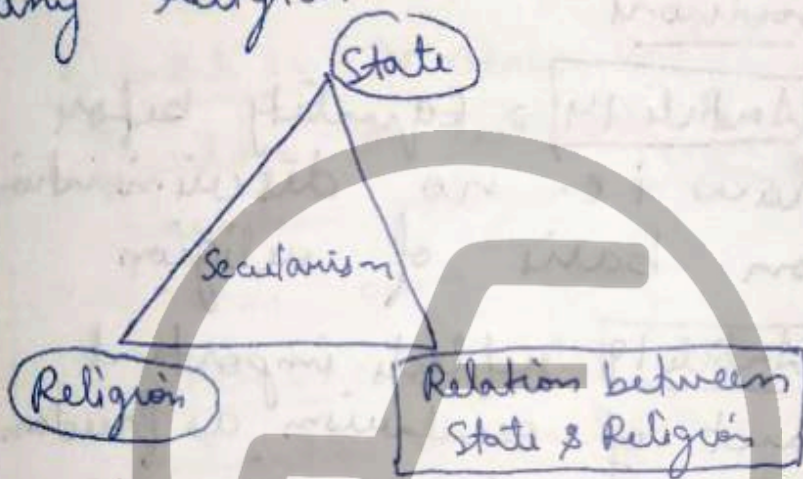 any religion
State
Secularism
Religion
Relation between
State & Religion